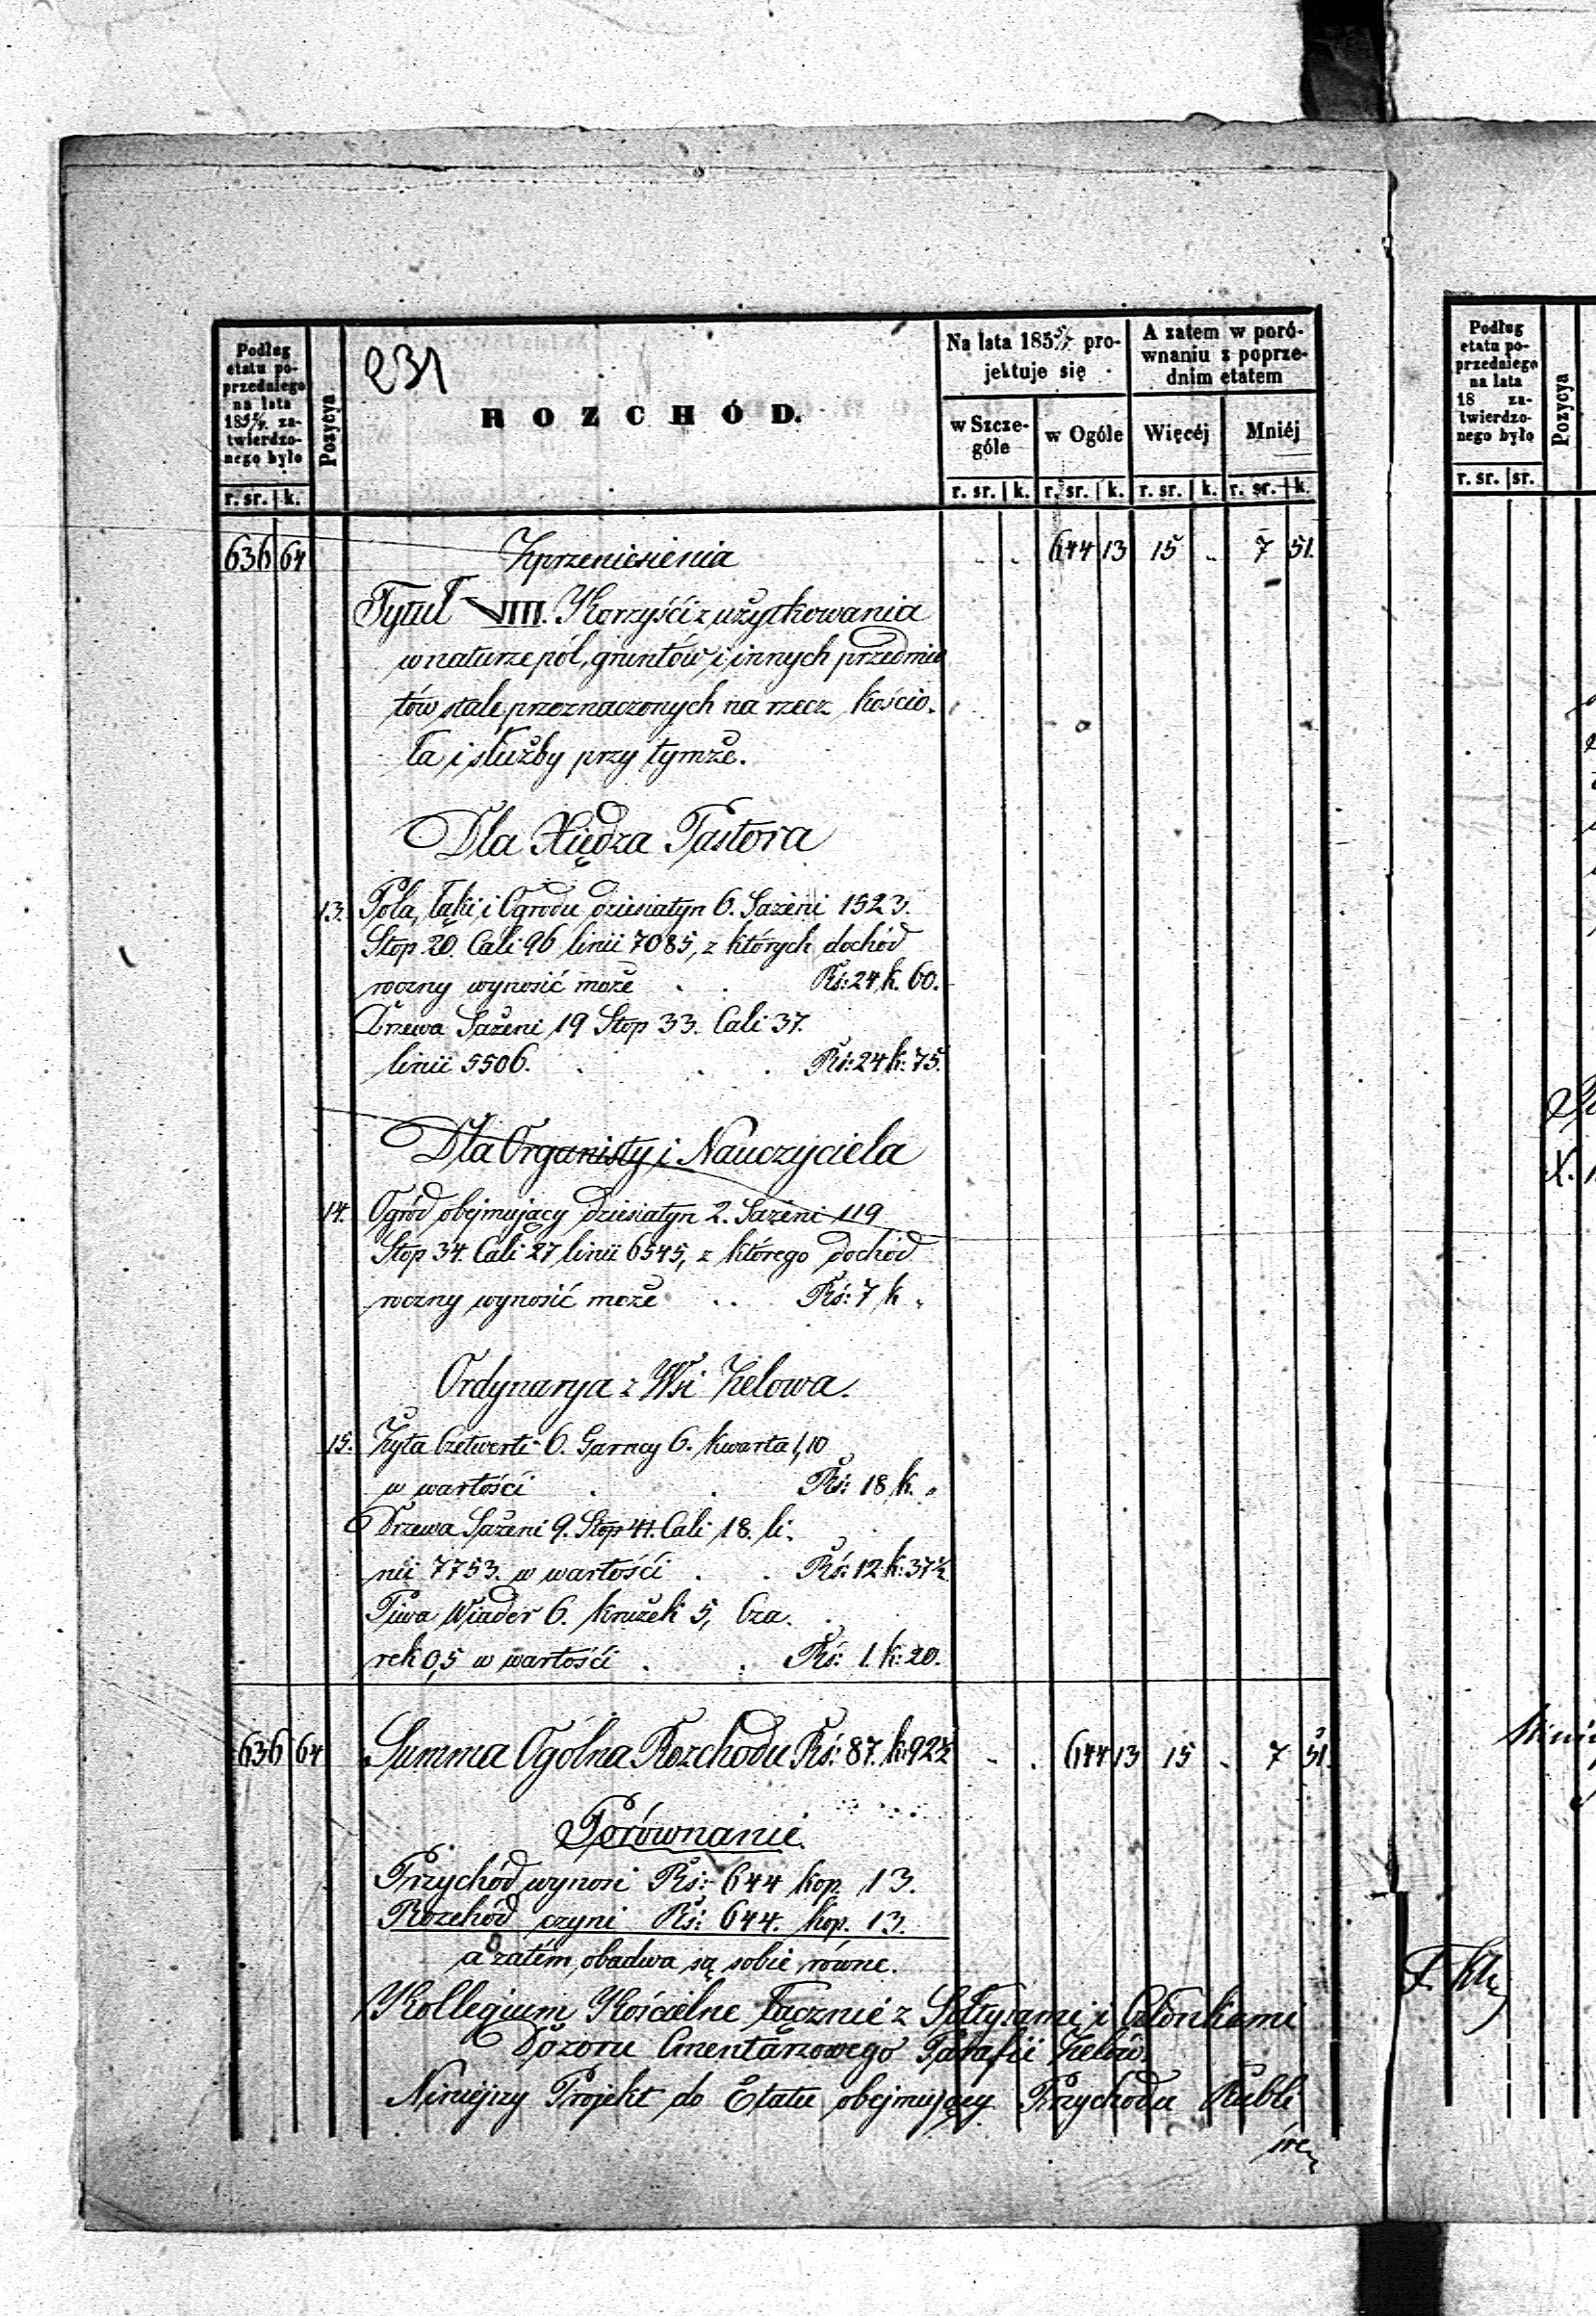 Podług etatu poprzedniego na lata 185 zatwierdzonego było
r. sr. k.
Pozycya
231
ROZCHÓD.
Na lata 185 5/7 projektuje się
w Szczególe
w Ogóle
r. sr. k. r. sr. k.
A zatem w porównaniu z poprzednim etatem
Więcéj
Mniéj
r. sr. k. r. sr. k.
636 64 Zprzeniesienia „ „ 644 13 15 „ 7 51.
Tytuł VIII. Korzyści z użytkowania
w naturze pól, gruntów i innych przedmio
tów stale przeznaczonych na rzecz kościo-
ła i służby przy tymże.
Dla Xiędza Pastora
13. Pola, łąki i Ogrodu dziesiatyn 6. Sażeni 1523.
Stop. 20. Cali 96 linii 7085, z których dochód
roczny wynosić może . . Rś: 24 k. 60.
Drzewa Sażeni 19 Stop 33. Cali 37.
linii 5506. . . . Rś: 24 k: 75.
Dla Organisty i Nauczyciela
14. Ogród obejmujący dziesiatyn 2. Sażeni 119
Stop 34. Cali 27 linii 6545, z którego dochód
roczny wynosić może . . Rś: 7 k „
Ordynarya z Wsi Zelowa.
15. Żyta Czetwerti 6. Garncy 6. kwarta 1,10
w wartości . . Rś: 18 k. „
Drzewa Sażeni 9. Stop 41. Cali 18. li-
nii 7753. w wartości . . Rś: 12 k: 37½
Piwa Wiader 6. krużek 5, Cza-
rek 0,5 w wartości . . Rś: 1. k: 20.
636 64 Summa Ogólna Rozchodu Rś: 87. k: 92½ „ . 644 13 15 „ 7 51.
Porównanie.
Przychód wynosi Rś: 644 kop. 13.
Rozchód czyni Rś: 644. kop. 13.
a zatém, obadwa są sobie równe.
Kollegium Kościelne łącznie z Sołtysami i Członkami
Dozoru Cmentarzowego Parafii Zelów.
Niniejszy Projekt do Etatu obejmujący Przychodu Rubli
sre
Podług etatu poprzedniego na lata 18 zatwierdzonego było
r. sr. sr.
Pozycya